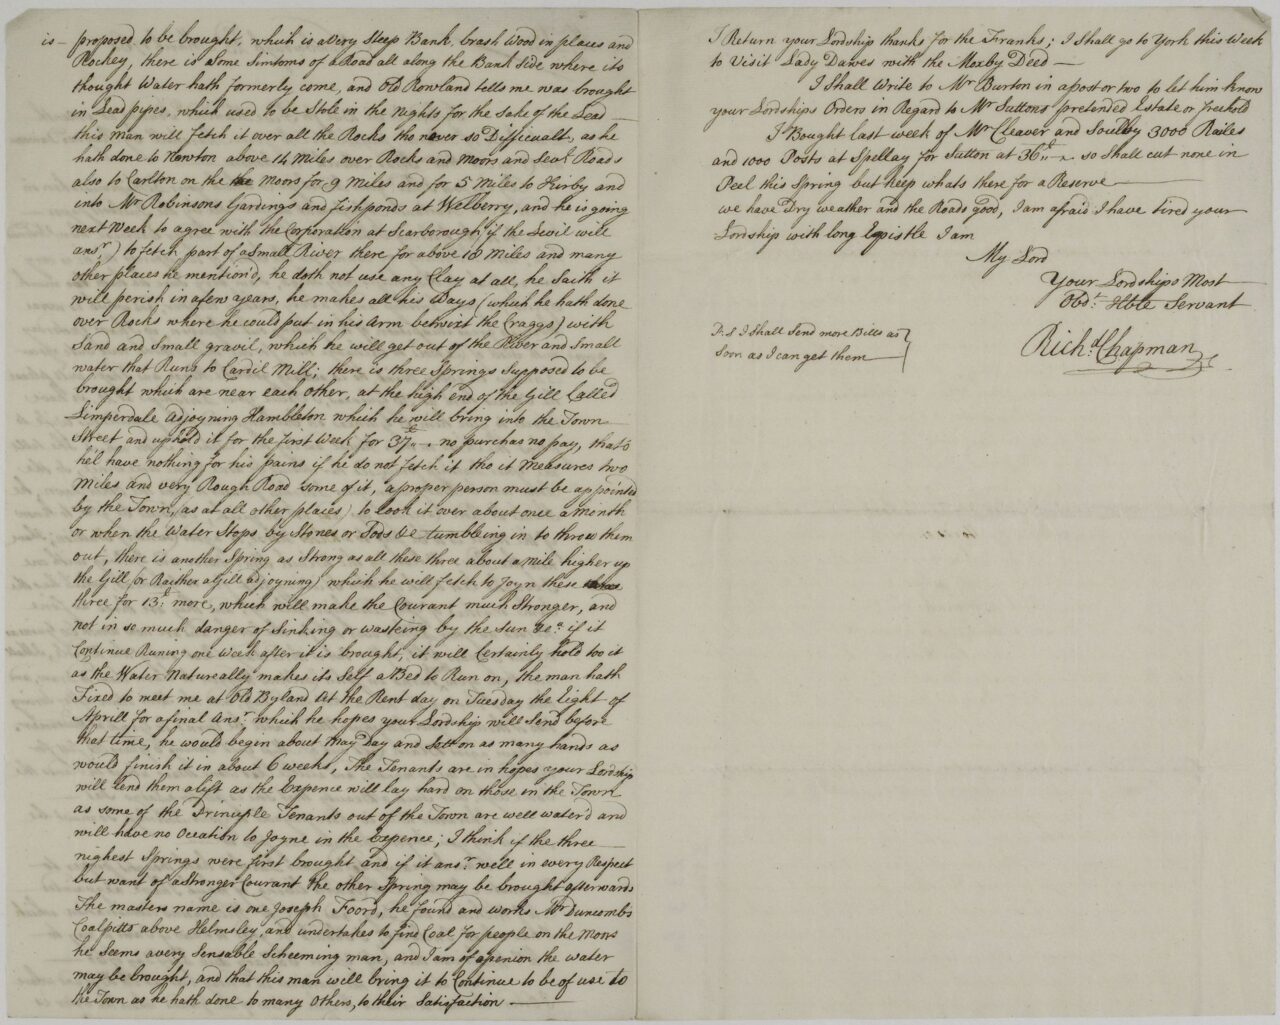 is - proposed to be brought, which is a Very Steep Bank, brash Wood in places and
Rockey, there is some Simtoms of a Road all along the Bank side where its
thought Water hath formerly come, and Old Rowland tells me was brought
in Lead pipes, which used to be Stole in the Nights for the Sake of the Lead —
this man will fetch it over all the Rocks tho never so Difficualt, as he
hath done to Newton above 14 Miles over Rocks and Moors and Sevl. Roads
also to Carlton on the the Moors for 9 Miles and for 5 Miles to Kirby and
into Mr Robinsons Gardings and fishponds at Welberry, and he is going
next Week to agree with the Corporation at Scarborough (if the Levil will
ansr.) to fetch part of a Small River there for above 18 Miles and many
other places he mention'd, he doth not use any Clay at all, he Saith it
will perish in a few years, he makes all his Ways (which he hath done
over Rocks where he could put in his Arm betwixt the Craggs) with
Sand and Small gravil, which he will get out of the River and Small
water that Runs to Cardil Mill; there is three Springs Supposed to be
brought which are near each other, at the high end of the Gill Called
Limperdale Adjoyning Hambleton which he will bring into the Town
Street and uphold it for the first Week for 37£.. no purchas no pay, that is
he'l have nothing for his pains if he do not fetch it tho it Measures two
Miles and very Rough Road some of it, a proper person must be appointed
by the Town, (as at all other places) to look it over about once a Month
or when the Water Stops by Stones or Sods &c tumbleing in to throw them
out, there is another Spring as Strong as all these three about a Mile higher up
the Gill (or Raither a Gill adjoyning) which he will fetch to Joyn these
three for 13£ more, which will make the Courant much Stronger, and
not in so much danger of Sinking or wasteing by the Sun &c. if it
Continue Runing one Week after it is brought, it will Certainly hold too it
as the Water Natureally makes its Self a Bed to Run on, the man hath
Fixed to meet me at Old Byland At the Rent day on Tuesday the Eight of
Aprill for a final Ansr. which he hopes your Lordship will Send before
that time, he would begin about May Day and Sett on as many hands as
would finish it in about 6 weeks, The Tenants are in hopes your Lordship
will lend them a lift as the Expence will lay hard on those in the Town
as some of the Principle Tenants out of the Town are well water'd and
will have no Occation to Joyne in the Expence; I think if the three
nighest Springs were first brought and if it ansr. well in every Respect
but want of a Stronger Courant the other Spring may be brought afterwards
The masters name is one Joseph Foord, he found and works Mr Duncombs
Coalpitts above Helmsley, and undertakes to find Coal for people on the Moors
he Seems a very Sensable Scheeming man, and I am of apenion the water
may be brought, and that this man will bring it to Continue to be of use to
the Town as he hath done to many Others, to their Satisfaction —
I Return your Lordship thanks for the Franks; I Shall go to York this Week
to Visit Lady Dawes with the Moxby Deed —
I Shall Write to Mr Burton in a post or two to let him know
your Lordships Orders in Regard to Mr Suttons pretended Estate or freehold
I Bought last week of Mr Cleaver and Soulby 3000 Railes
and 1000 Posts at Spellay for Sutton at 36£.. so Shall cut none in
Peel this Spring but keep whats there for a Reserve —
we have Dry weather and the Roads good, I am afraid I have tired your
Lordship with long Epistle I am
My Lord
Your Lordships Most
Obdt. Hble Servant
Richd. Chapman
P:S I Shall Send more Bills as
Soon as I can get them —